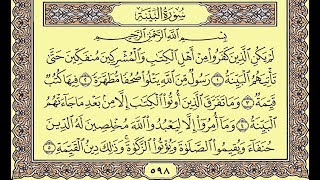 سُورَةُ الْبَيِّنَةِ
بِسْمِ اللَّهِ الرَّحْمَٰنِ الرَّحِيمِ
لَمْ يَكُنِ الَّذِينَ كَفَرُوا مِنْ أَهْلِ الْكِتَابِ وَالْمُشْرِكِينَ مُنفَكِّينَ حَتَّىٰ
تَأْتِيَهُمُ الْبَيِّنَةُ ١ رَسُولٌ مِّنَ اللَّهِ يَتْلُوا صُحُفًا مُّطَهَّرَةً ٢ فِيهَا كُتُبٌ
قَيِّمَةٌ ٣ وَمَا تَفَرَّقَ الَّذِينَ أُوتُوا الْكِتَابَ إِلَّا مِن بَعْدِ مَا جَاءَتْهُمُ
الْبَيِّنَةُ ٤ وَمَا أُمِرُوا إِلَّا لِيَعْبُدُوا اللَّهَ مُخْلِصِينَ لَهُ الدِّينَ
حُنَفَاءَ وَيُقِيمُوا الصَّلَوٰةَ وَيُؤْتُوا الزَّكَوٰةَ وَذَٰلِكَ دِينُ الْقَيِّمَةِ ٥
٥٩٨